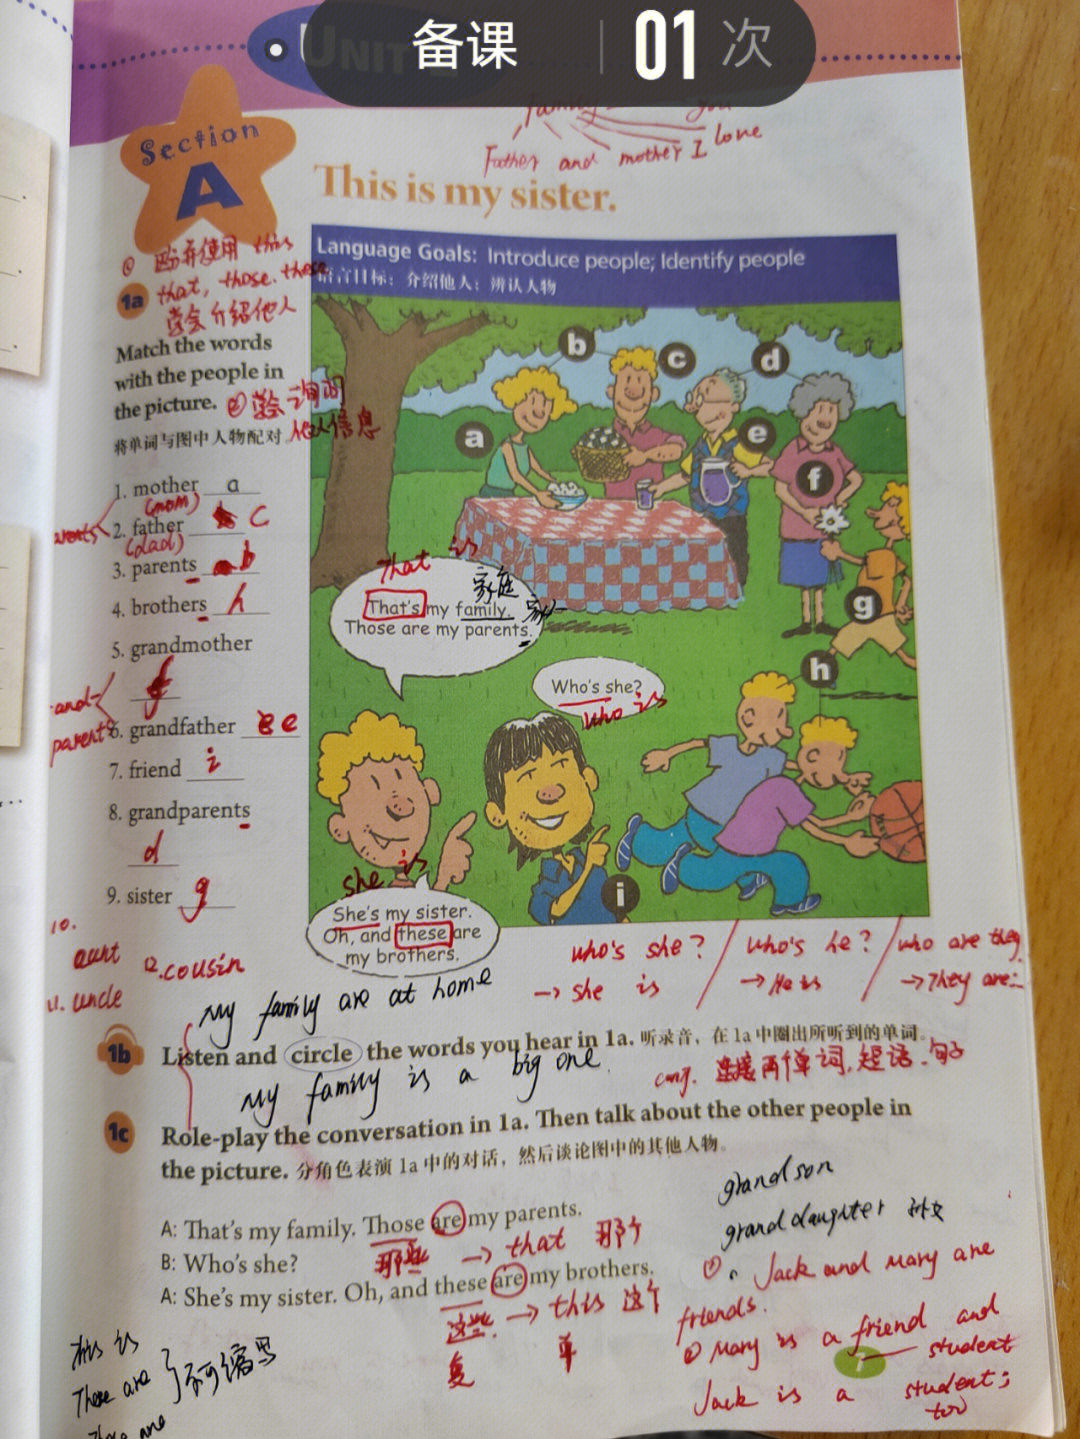 备课 01 次
UNIT 2
Father and mother I love you
Section
A
This is my sister.
Language Goals: Introduce people; Identify people
语言目标：介绍他人；辨认人物
使用 this
that, those. these
学会介绍他人
1a
Match the words
with the people in
the picture.
将单词与图中人物配对
② 学会询问
他人信息
1. mother a
(mom)
2. father c
(dad)
3. parents b
4. brothers h
5. grandmother
f
6. grandfather e
7. friend i
8. grandparents
d
9. sister g
10.
aunt
11. uncle
12. cousin
b
c
d
a
e
f
g
h
i
That is
家庭
That's my family.
Those are my parents.
Who's she?
who is
she is
She's my sister.
Oh, and these are
my brothers.
who's she? / who's he? / who are they
→ she is / → He is / → They are
My family are at home
1b
Listen and circle the words you hear in 1a. 听录音，在 1a 中圈出所听到的单词。
My family is a big one.
conj. 连接两个单词, 短语、句子
1c
Role-play the conversation in 1a. Then talk about the other people in
the picture. 分角色表演 1a 中的对话，然后谈论图中的其他人物。
grandson
granddaughter 孙女
A: That's my family. Those are my parents.
那些 → that 那个
B: Who's she?
A: She's my sister. Oh, and these are my brothers.
这些 → this 这个
复 单
① Jack and Mary are
friends.
② Mary is a friend and
student
Jack is a student;
too
this is
These are
Those are
不可缩写